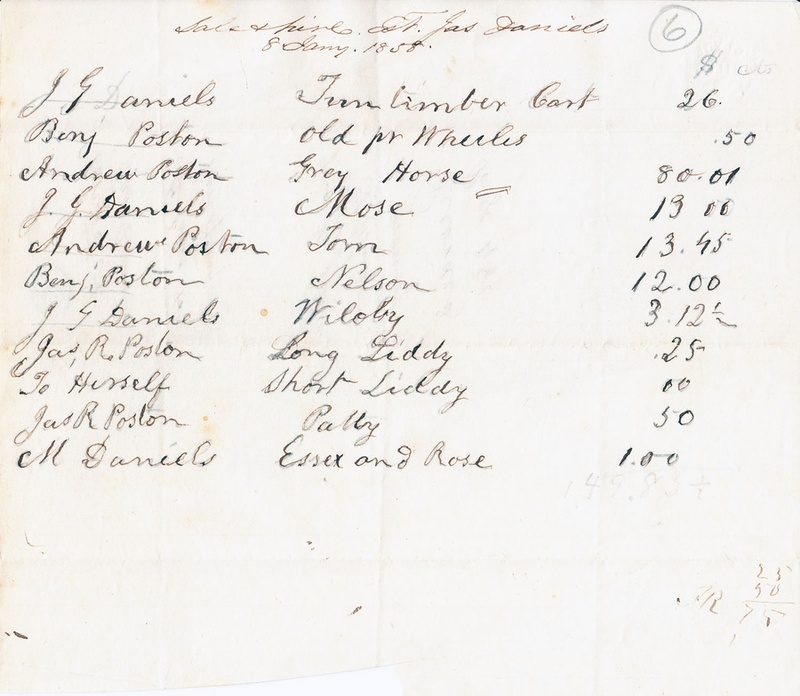 Sale & hire Est. Jas Daniels
8 Jany. 1858.
6
$ cts
J G Daniels Turn timber Cart 26.
Benj Poston Old pr Wheels .50
Andrew Poston Grey Horse 80.01
J. G. Daniels Mose 13 00
Andrew Poston Tom 13.45
Benj. Poston Nelson 12.00
J G Daniels Wiloby 3.12½
Jas, R. Poston Long Liddy .25
To Herself Short Liddy 00
Jas R Poston Patty 50
M Daniels Essex and Rose 1.00
149.83½
25
50
JR 75